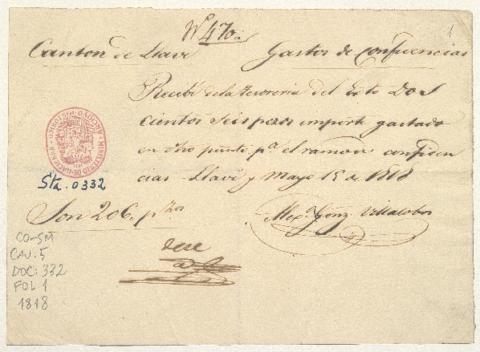 Nº 470.
1
Canton de Llave Gastos de Confidencias
Recibi de la tesoreria del Exto Dos
cientos seis pesos importe gastado
en dho punto pª el ramo de confiden
cias - Llave y Mayo 15 de 1818
Son 206. ps
Alexo Gonz Villalobos
Sta. 0332
CO-SM
CAJ. 5
DOC: 332
FOL 1
1818